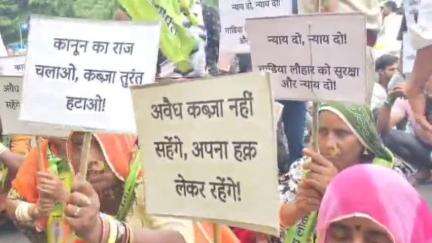 न्याय दो, न्याय दो!
कानून का राज
चलाओ, कब्ज़ा तुरंत
हटाओ!
न्याय दो, न्याय दो!
गाडिया लौहार को सुरक्षा
और न्याय दो!
सहेंगे
अवैध कब्ज़ा नहीं
सहेंगे, अपना हक़
लेकर रहेंगे!